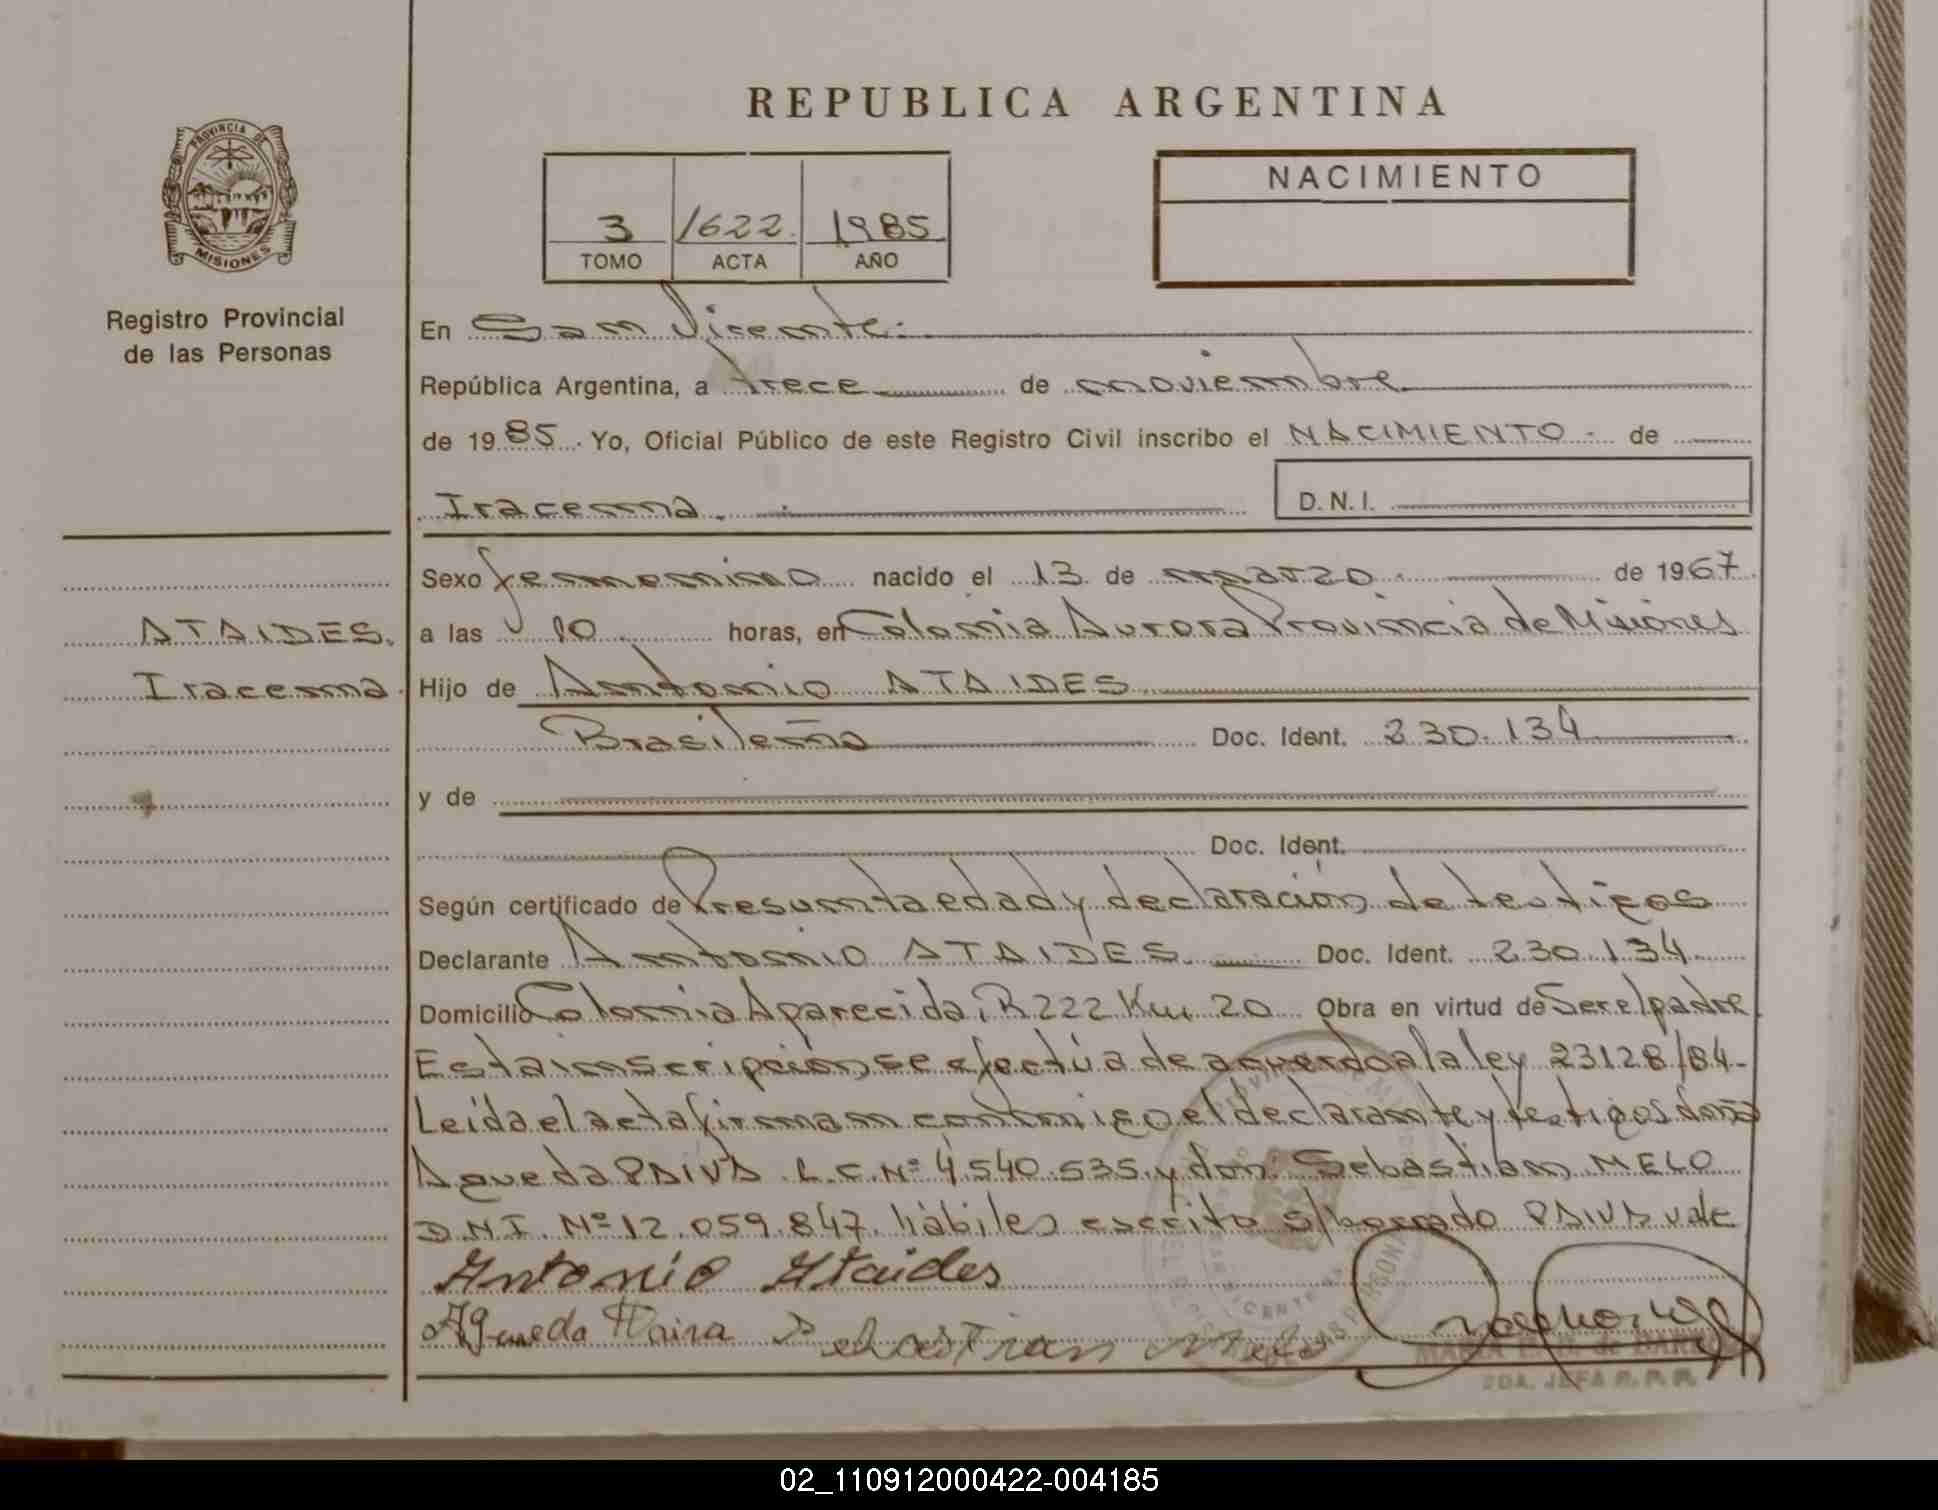 REPUBLICA ARGENTINA
PROVINCIA DE
MISIONES
Registro Provincial
de las Personas
3 1622 1985
TOMO ACTA AÑO
NACIMIENTO
En San Vicente.-
República Argentina, a trece de noviembre
de 1985. Yo, Oficial Público de este Registro Civil inscribo el NACIMIENTO - de
Iracema. D.N.I.
ATAIDES.
Iracema.
Sexo femenino nacido el 13 de marzo.- de 1967
a las 10 horas, en Colonia Aurora Provincia de Misiones
Hijo de Antonio ATAIDES
Brasileño Doc. Ident. 230.134
y de
Doc. Ident.
Según certificado de Presunta edad y declaración de testigos
Declarante Antonio ATAIDES. Doc. Ident. 230.134
Domicilio Colonia Aparecida, R 222 Km 20 Obra en virtud de Ser el padre
Esta inscripción se efectúa de acuerdo a la ley 23128/84-
Leída el acta firman conmigo el declarante y testigos doña
Agueda PAIVA L.C.Nº 4.540.535 y don: Sebastian MELO
D.N.I. Nº 12.059.847. hábiles escrito s/borrado PAIVA vale
Antonio Ataides
Agueda Paiva Sebastian Melo
2DA. JEFA R.P.P.
02_110912000422-004185